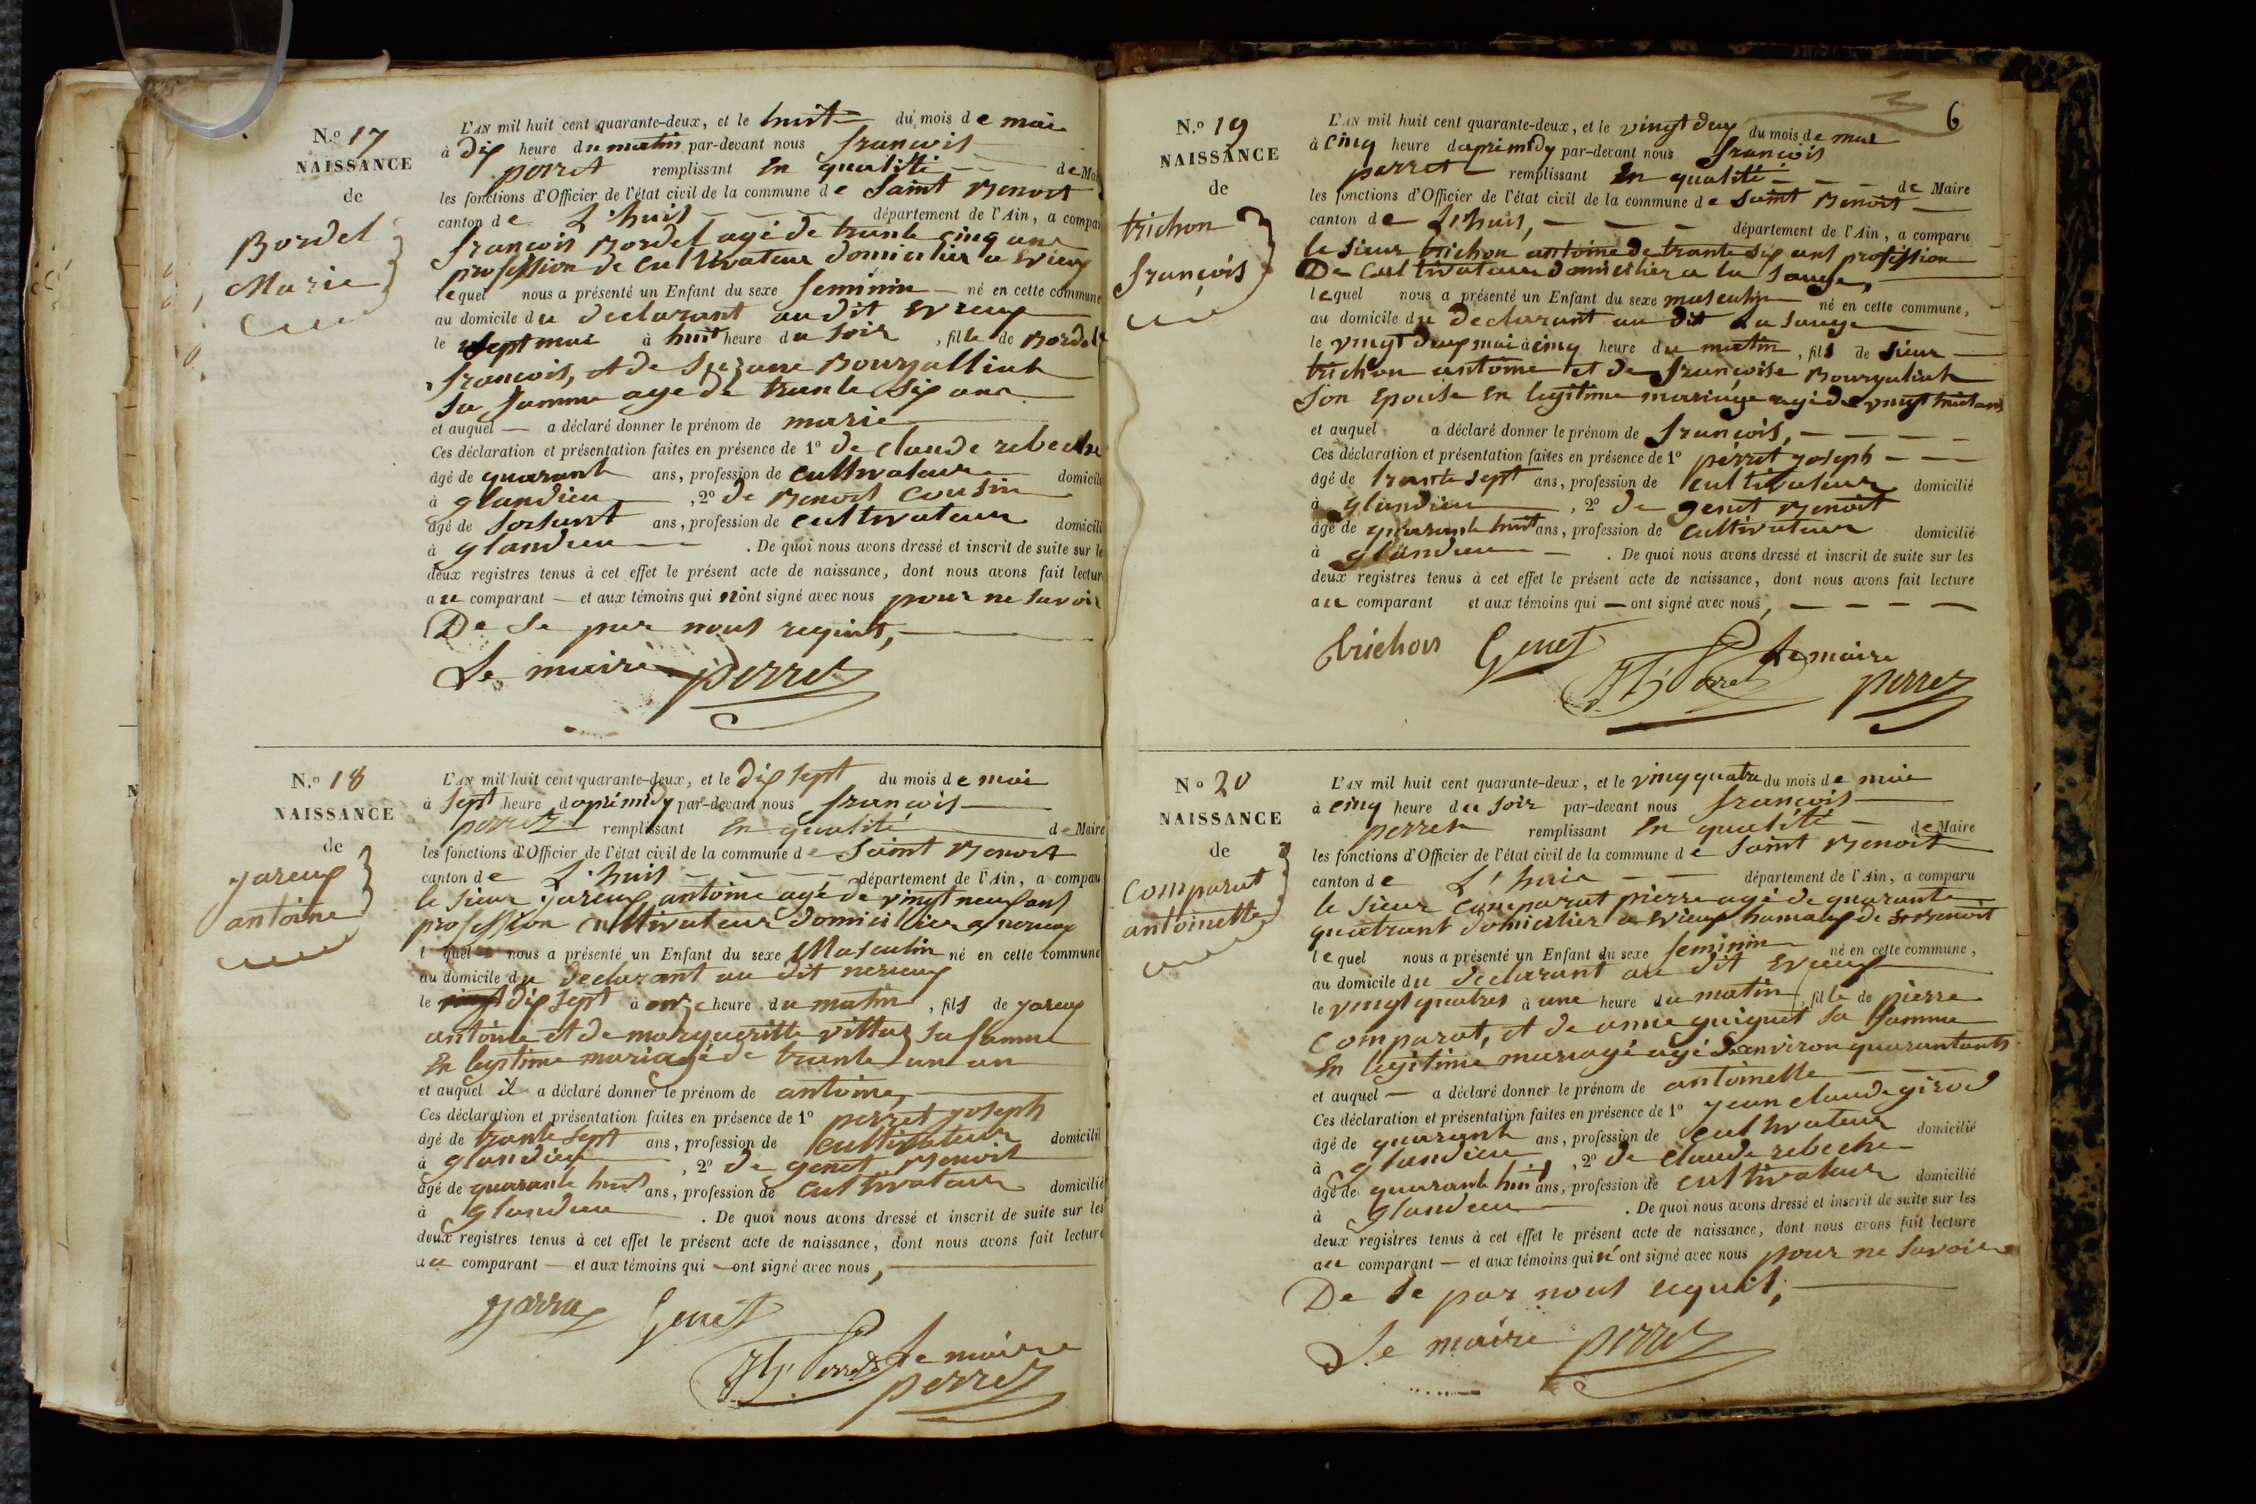 N.º 17
NAISSANCE
de
Bordel
Marie
L'AN mil huit cent quarante-deux, et le huit du mois de mai
à dix heure du matin par-devant nous françois
perret remplissant En qualité de Mai
les fonctions d'Officier de l'état civil de la commune de Saint Benoit
canton de L'huis département de l'Ain, a compar
françois Bordel agé de trante cinq ans
profession de cultivateur domicilier a Evieux
lequel nous a présenté un Enfant du sexe feminin né en cette commune
au domicile du declarant au dit Evieux
le sept mai à huit heure du soir, fille de Bordel
françois, et de Suzane Bourgalliat
sa famme age de trante six ans
et auquel a déclaré donner le prénom de marie
Ces déclaration et présentation faites en présence de 1º de claude rebeche
âgé de quarant ans, profession de cultivateur domicilié
à glandieu, 2º de Benoit Cousin
âgé de soisant ans, profession de cultivateur domicilié
à glandieu. De quoi nous avons dressé et inscrit de suite sur le
deux registres tenus à cet effet le présent acte de naissance, dont nous avons fait lectur
au comparant et aux témoins qui n'ont signé avec nous pour ne savoir
De Se par nous requit,
Le maire perret
N.º 18
NAISSANCE
de
yareux
antoine
L'AN mil huit cent quarante-deux, et le dix sept du mois de mai
à sept heure daprimidy par-devant nous françois
perret remplissant En qualité de Maire
les fonctions d'Officier de l'état civil de la commune de Saint Benoit
canton de L'huis département de l'Ain, a comparu
le sieur yareux antoine agé de vingt neuf ans
profession cultivateur domicilier a nerieux
l quel nous a présenté un Enfant du sexe Masculin né en cette commune
au domicile du declarant au dit nerieux
le dix sept à onze heure du matin, fils de yareux
antoine et de margueritte vittoz sa famme
En legitime mariage de trante un an
et auquel il a déclaré donner le prénom de antoine
Ces déclaration et présentation faites en présence de 1º perret joseph
âgé de trante sept ans, profession de cultivateur domicilié
à glandieu, 2º de genet Benoit
âgé de quarante huit ans, profession de cultivateur domicilié
à glandieu. De quoi nous avons dressé et inscrit de suite sur les
deux registres tenus à cet effet le présent acte de naissance, dont nous avons fait lecture
au comparant et aux témoins qui ont signé avec nous,
yarreux Genet
Perret Le maire
perret
6
N.º 19
NAISSANCE
de
trichon
françois
L'AN mil huit cent quarante-deux, et le vingt deux du mois de mai
à cinq heure daprimidy par-devant nous françois
perret remplissant En qualité de Maire
les fonctions d'Officier de l'état civil de la commune de Saint Benoit
canton de L'huis, département de l'Ain, a comparu
le sieur trichon antoine de trante six ans profission
De cultivateur domicilier a la sauge,
lequel nous a présenté un Enfant du sexe masculin né en cette commune,
au domicile du declarant au dit la sauge
le vingt deux mai à cinq heure du matin, fils de sieur
trichon antoine et de françoise Bourgaliat
son epouse En legitime mariage agé de vingt huit ans
et auquel a déclaré donner le prénom de françois,
Ces déclaration et présentation faites en présence de 1º perret joseph
âgé de trante sept ans, profession de cultivateur domicilié
à glandieu, 2º de genet Benoit
âgé de quarante huit ans, profession de cultivateur domicilié
à glandieu. De quoi nous avons dressé et inscrit de suite sur les
deux registres tenus à cet effet le présent acte de naissance, dont nous avons fait lecture
au comparant et aux témoins qui ont signé avec nous,
trichon Genet Perret Le maire
perret
Nº 20
NAISSANCE
de
Comparat
antoinette
L'AN mil huit cent quarante-deux, et le vingt quatre du mois de mai
à cinq heure du soir par-devant nous françois
perret remplissant En qualité de Maire
les fonctions d'Officier de l'état civil de la commune de Saint Benoit
canton de L'huis département de l'Ain, a comparu
le sieur comparat pierre agé de quarante
quatrant domicilier a Evieux hamaux de St Benoit
lequel nous a présenté un Enfant du sexe feminin né en cette commune,
au domicile du declarant au dit Evieux
le vingt quatres à une heure du matin, fille de pierre
Comparat, et de anne guiguet sa famme
En legitime mariage agé De anviron quarantants
et auquel a déclaré donner le prénom de antoinette
Ces déclaration et présentation faites en présence de 1º jean claude girod
âgé de quarant ans, profession de cultivateur domicilié
à glandieu, 2º de claude rebeche
âgé de quarante huit ans, profession de cultivateur domicilié
à glandieu. De quoi nous avons dressé et inscrit de suite sur les
deux registres tenus à cet effet le présent acte de naissance, dont nous avons fait lecture
au comparant et aux témoins qui n'ont signé avec nous pour ne savoir
De Se par nous requit,
Le maire perret